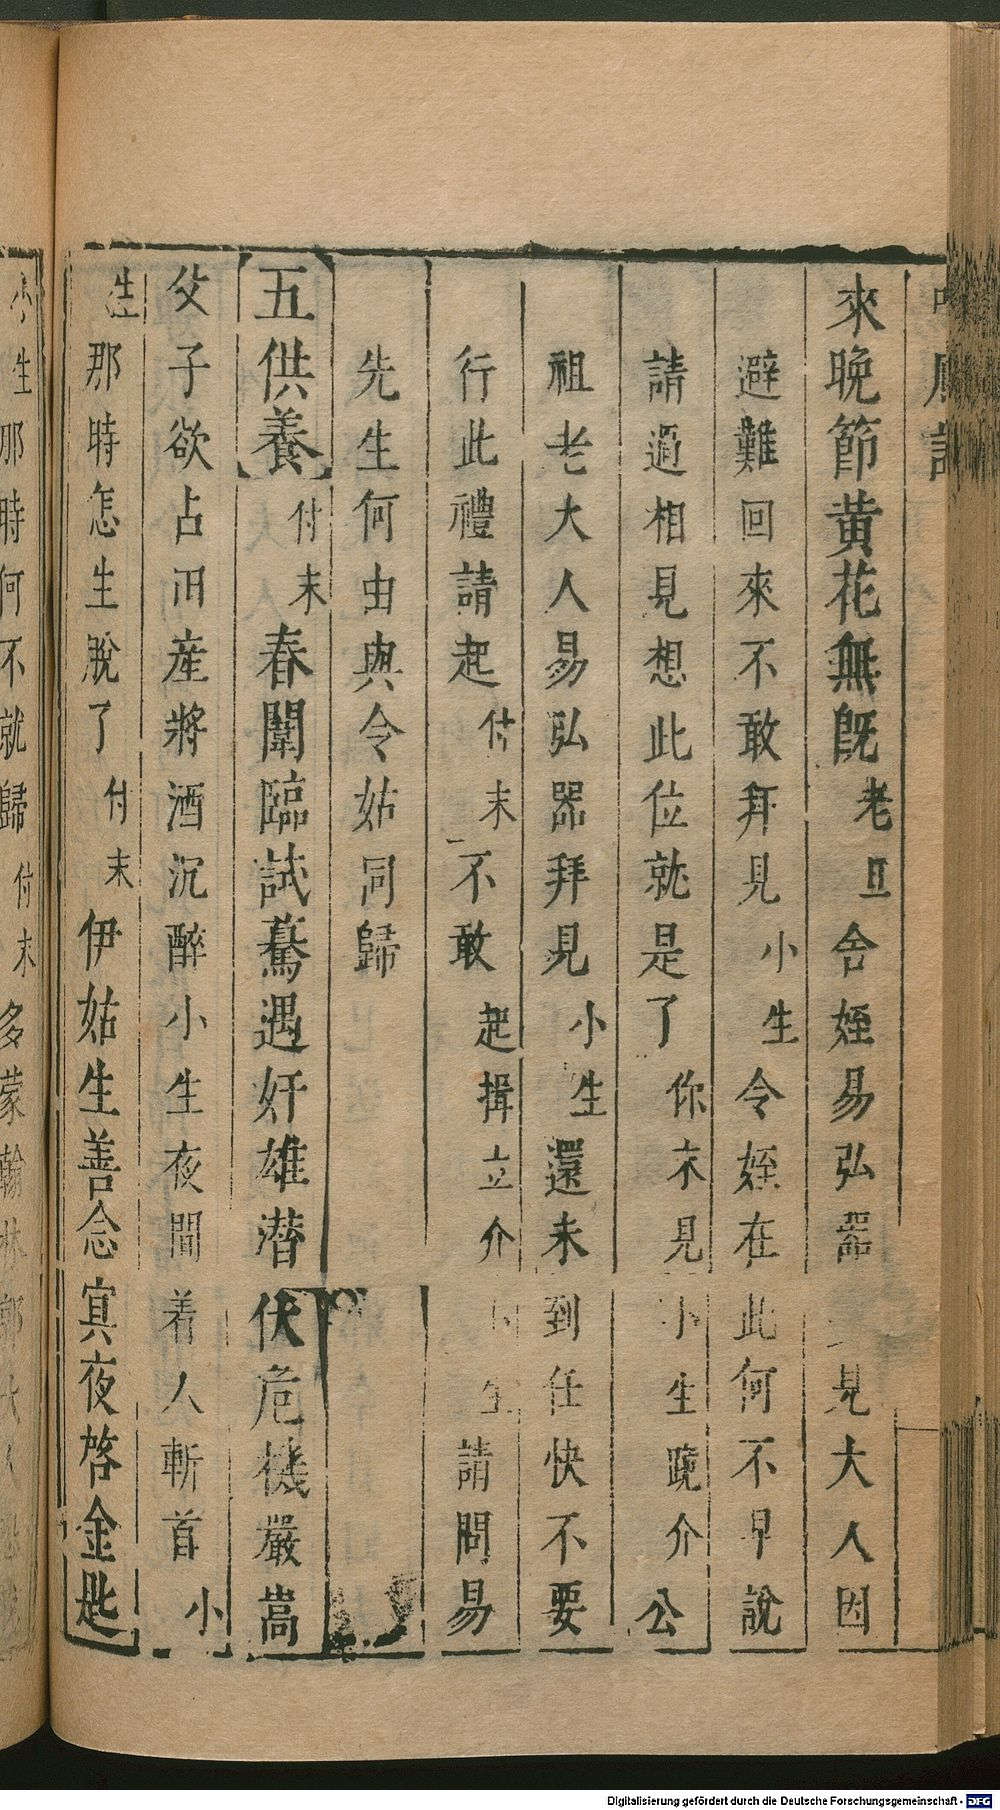 來晚節黄花無旣老旦舍姪易弘噐見大人因
避難回來不敢拜見小生令姪在此何不早說
請過相見想此位就是了你末見小生䟽介公
祖老大人易弘噐拜見小生還未到任快不要
行此禮請起付末不敢起揖立介小生請問易
先生何由與令姑同歸
【五供養】付末春闈臨試驀遇奸雄潜伏危機嚴嵩
父子欲占田産將酒沉醉小生夜間着人斬首小
生那時怎生脫了付末伊姑生善念寅夜啓金匙
小生那時何不就歸付末多蒙翰林郭大人
Digitalisierung gefördert durch die Deutsche Forschungsgemeinschaft - DFG